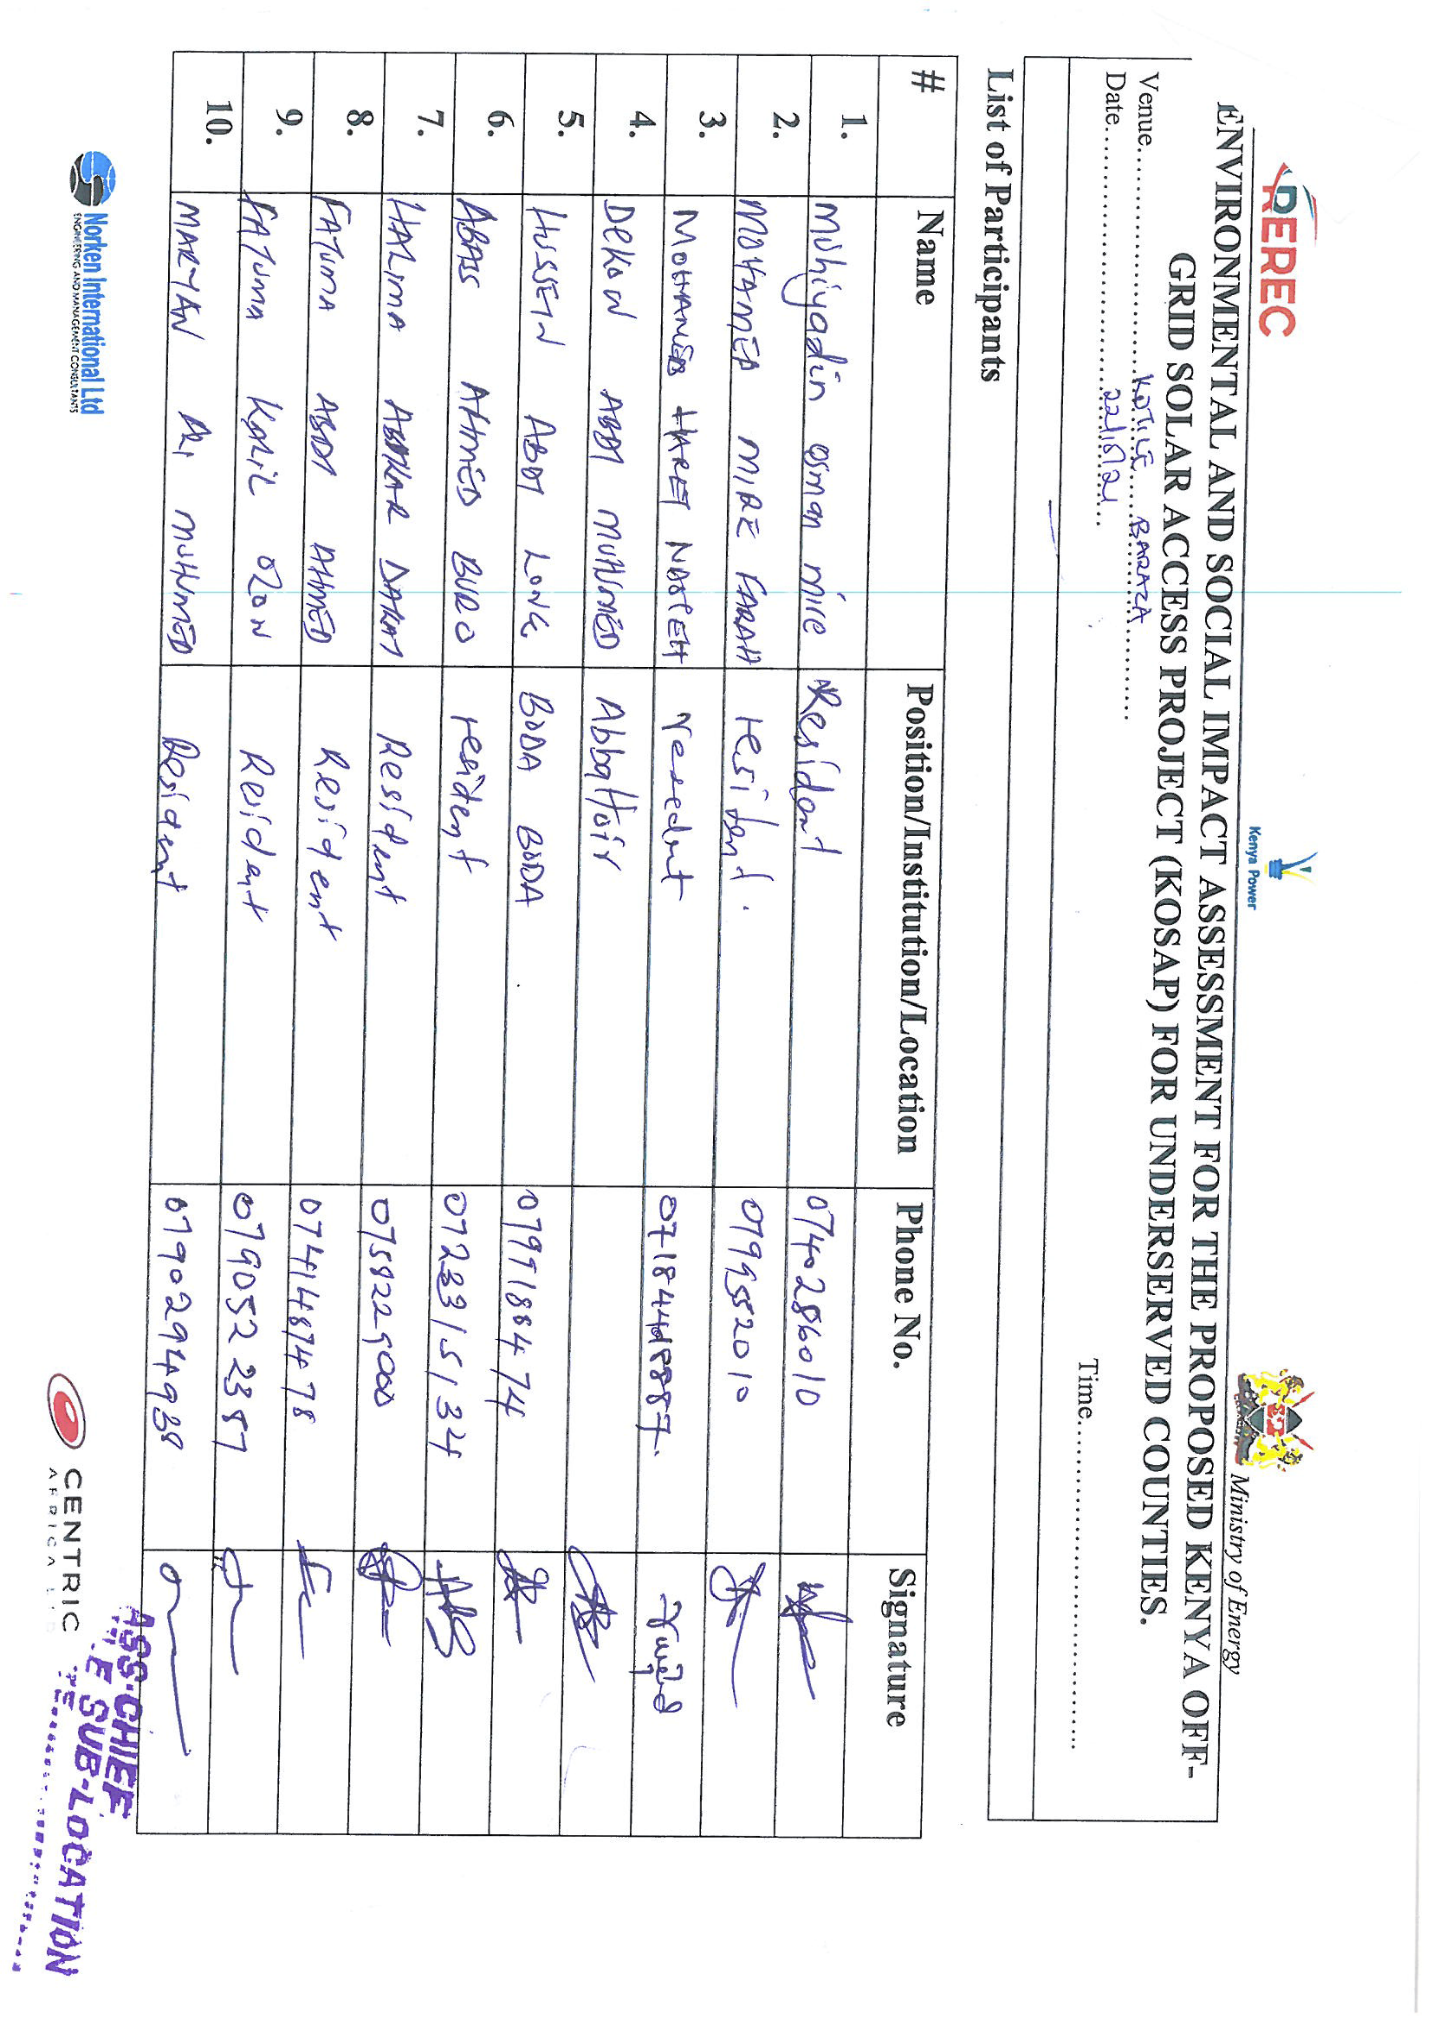 REREC
Kenya Power
Ministry of Energy
ENVIRONMENTAL AND SOCIAL IMPACT ASSESSMENT FOR THE PROPOSED KENYA OFF-
GRID SOLAR ACCESS PROJECT (KOSAP) FOR UNDERSERVED COUNTIES.
Venue........KOTILE BARAZA........
Date........22/10/21........ Time........
List of Participants
# Name Position/Institution/Location Phone No. Signature
1. Muhiyadin osman mire Resident 0740286010
2. MOHAMED MIRE FARAH resident. 0799552010
3. MOHAMED HARET 
4. DEKOW ABDI MUHUMED Abbattoir
5. HUSSEIN ABDI LONG BODA BODA 0799188474
6. ABASS AHMED BURO resident 0723315134
7. HALIMA ABUKAR Resident 0758229000
8. FATUMA ABDI AHMED Resident 0741487478
9. FATUMA Resident 0790522387
10. MARYAN MUHUMED Resident 0790294938
Norken International Ltd
ENGINEERING AND MANAGEMENT CONSULTANTS
CENTRIC
AFRICA
ASS-CHIEF
SUB-LOCATION